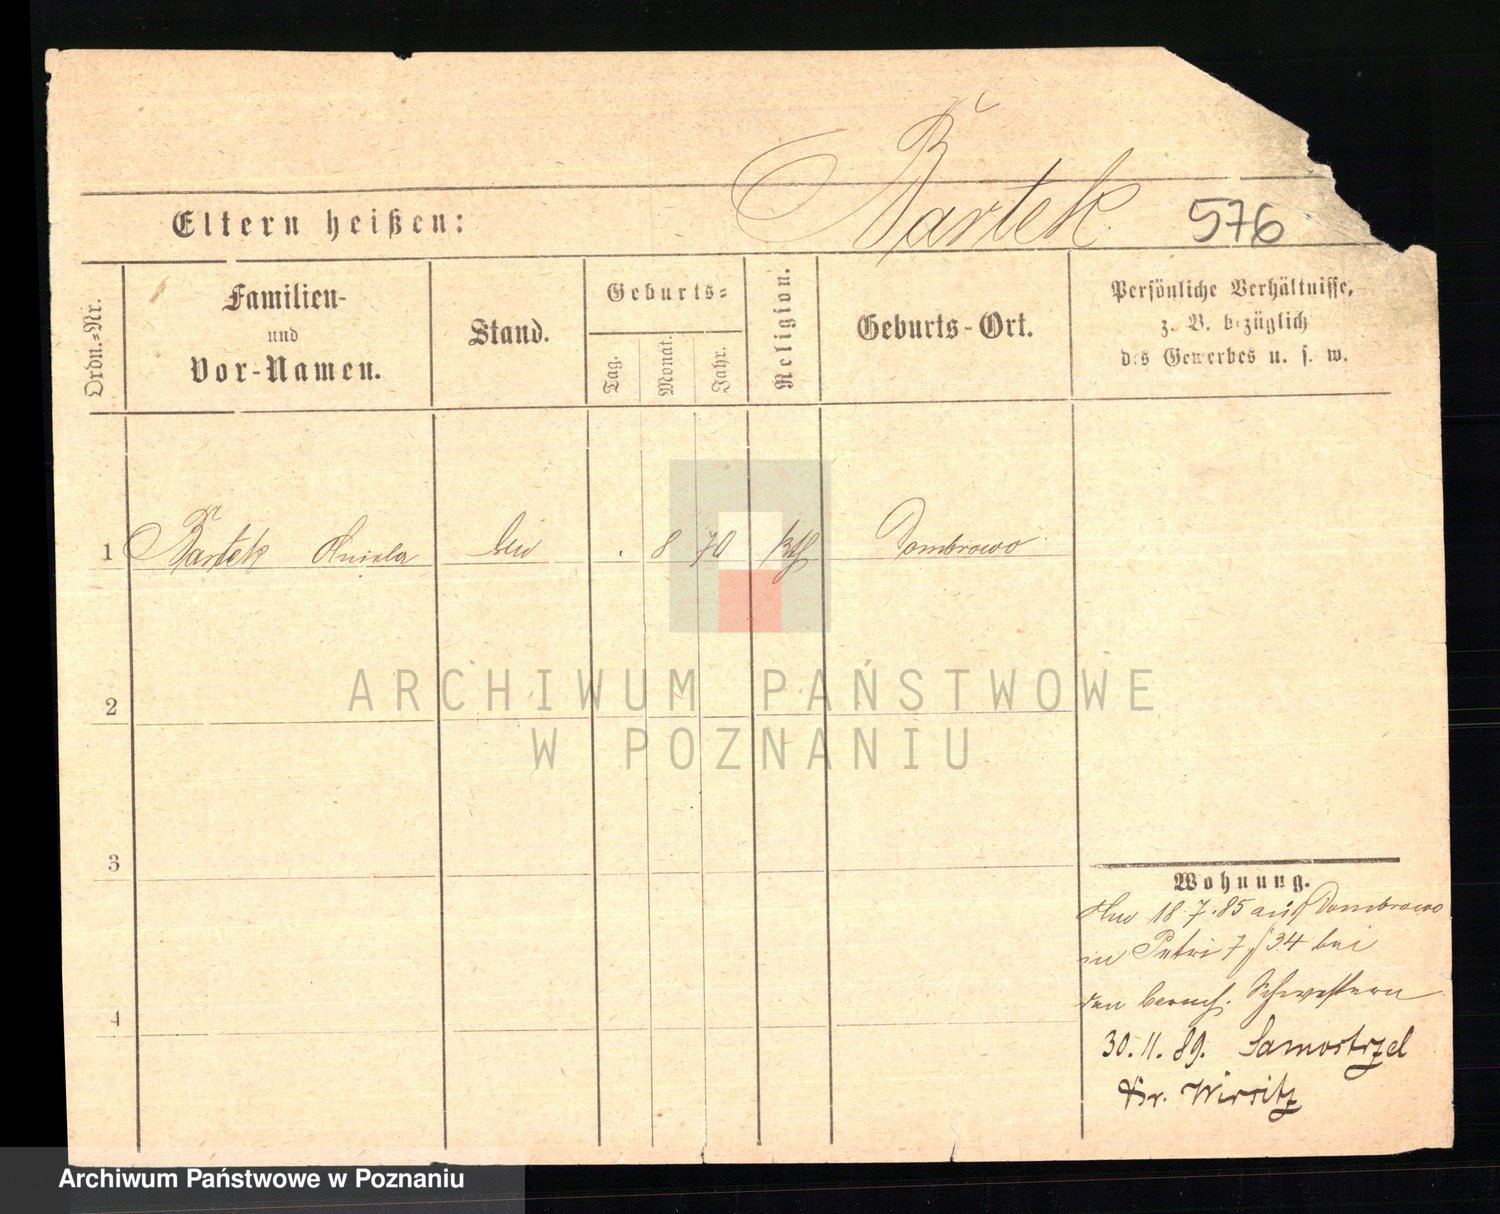 Bartek
576
Eltern heißen:
Ordn.-Nr.
Familien-
und
Vor-Namen.
Stand.
Geburts-
Tag.
Monat.
Jahr.
Religion.
Geburts-Ort.
Persönliche Verhältnisse,
z. B. bezüglich
des Gewerbes u. s. w.
1 Bartek Aniela . 8 70 kth Dombrowo
2
3
4
Wohnung.
18.7.85 aus Dombrowo
in Petri 7 34 bei
den barmh. Schwestern
30.11.89. Samostrzel
Kr. Wirsitz
ARCHIWUM PAŃSTWOWE
W POZNANIU
Archiwum Państwowe w Poznaniu